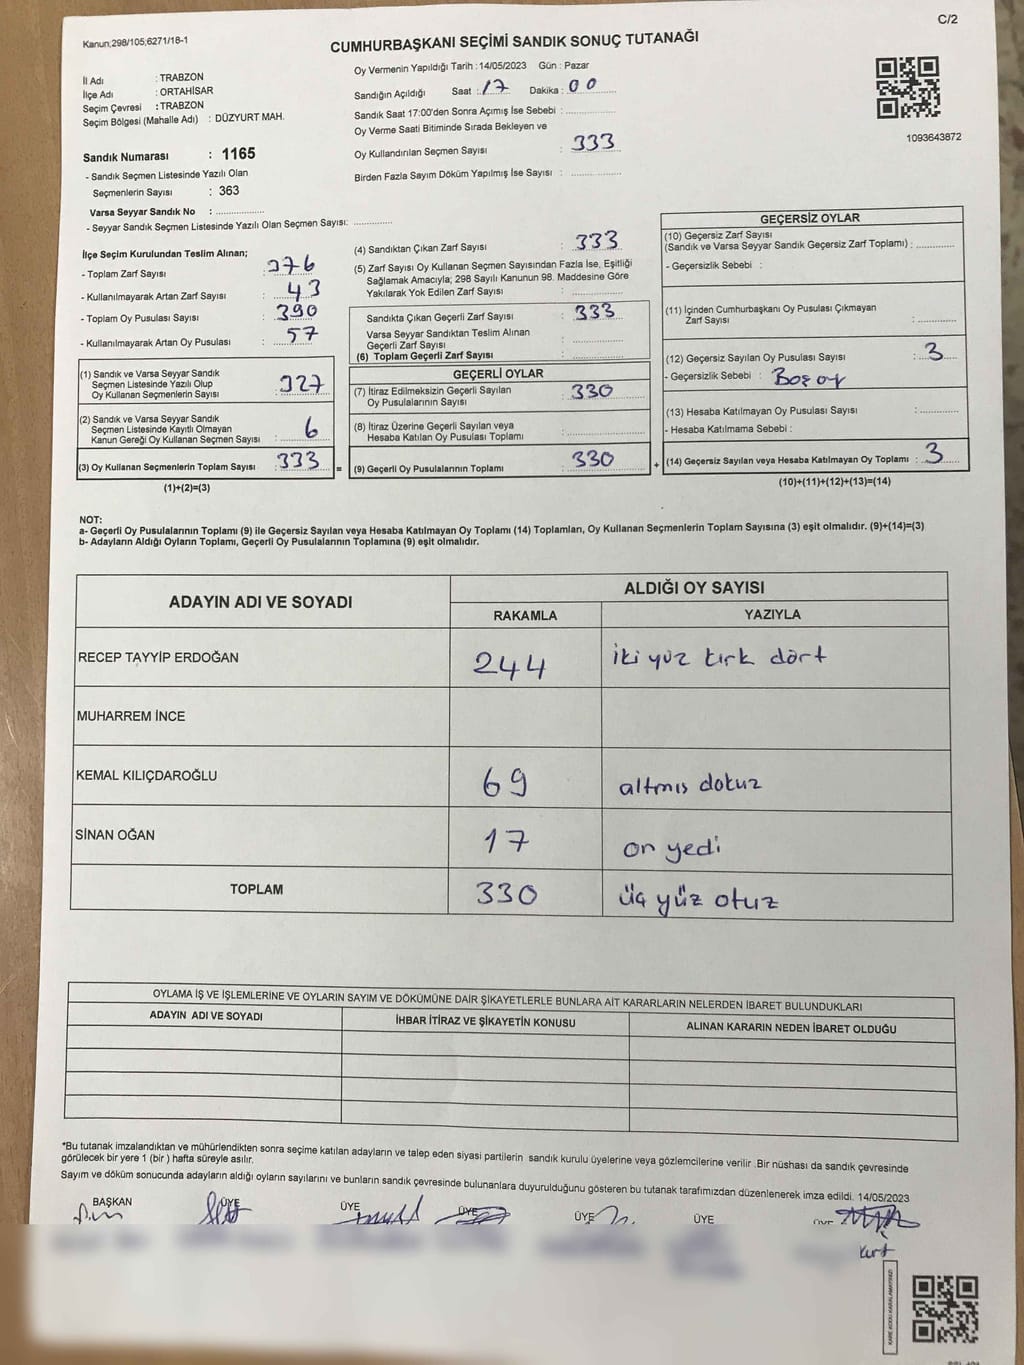 C/2
Kanun;298/105;6271/18-1
CUMHURBAŞKANI SEÇİMİ SANDIK SONUÇ TUTANAĞI
İl Adı : TRABZON
İlçe Adı : ORTAHİSAR
Seçim Çevresi : TRABZON
Seçim Bölgesi (Mahalle Adı) : DÜZYURT MAH.
Sandık Numarası : 1165
- Sandık Seçmen Listesinde Yazılı Olan
Seçmenlerin Sayısı : 363
Varsa Seyyar Sandık No :
- Seyyar Sandık Seçmen Listesinde Yazılı Olan Seçmen Sayısı:
Oy Vermenin Yapıldığı Tarih : 14/05/2023 Gün : Pazar
Sandığın Açıldığı Saat : 17 Dakika : 00
Sandık Saat 17:00'den Sonra Açımış İse Sebebi :
Oy Verme Saati Bitiminde Sırada Bekleyen ve
Oy Kullandırılan Seçmen Sayısı : 333
Birden Fazla Sayım Döküm Yapılmış İse Sayısı :
1093643872
İlçe Seçim Kurulundan Teslim Alınan;
- Toplam Zarf Sayısı : 376
- Kullanılmayarak Artan Zarf Sayısı : 43
- Toplam Oy Pusulası Sayısı : 390
- Kullanılmayarak Artan Oy Pusulası : 57
(1) Sandık ve Varsa Seyyar Sandık
Seçmen Listesinde Yazılı Olup
Oy Kullanan Seçmenlerin Sayısı : 327
(2) Sandık ve Varsa Seyyar Sandık
Seçmen Listesinde Kayıtlı Olmayan
Kanun Gereği Oy Kullanan Seçmen Sayısı : 6
(3) Oy Kullanan Seçmenlerin Toplam Sayısı : 333 =
(1)+(2)=(3)
(4) Sandıktan Çıkan Zarf Sayısı : 333
(5) Zarf Sayısı Oy Kullanan Seçmen Sayısından Fazla İse, Eşitliği
Sağlamak Amacıyla; 298 Sayılı Kanunun 98. Maddesine Göre
Yakılarak Yok Edilen Zarf Sayısı :
Sandıkta Çıkan Geçerli Zarf Sayısı : 333
Varsa Seyyar Sandıktan Teslim Alınan
Geçerli Zarf Sayısı :
(6) Toplam Geçerli Zarf Sayısı :
GEÇERLİ OYLAR
(7) İtiraz Edilmeksizin Geçerli Sayılan
Oy Pusulalarının Sayısı : 330
(8) İtiraz Üzerine Geçerli Sayılan veya
Hesaba Katılan Oy Pusulaları Toplamı :
(9) Geçerli Oy Pusulalarının Toplamı : 330 +
GEÇERSİZ OYLAR
(10) Geçersiz Zarf Sayısı
(Sandık ve Varsa Seyyar Sandık Geçersiz Zarf Toplamı) :
- Geçersizlik Sebebi :
(11) İçinden Cumhurbaşkanı Oy Pusulası Çıkmayan
Zarf Sayısı :
(12) Geçersiz Sayılan Oy Pusulası Sayısı : 3
- Geçersizlik Sebebi : Boş oy
(13) Hesaba Katılmayan Oy Pusulası Sayısı :
- Hesaba Katılmama Sebebi :
(14) Geçersiz Sayılan veya Hesaba Katılmayan Oy Toplamı : 3
(10)+(11)+(12)+(13)=(14)
NOT:
a- Geçerli Oy Pusulalarının Toplamı (9) ile Geçersiz Sayılan veya Hesaba Katılmayan Oy Toplamı (14) Toplamları, Oy Kullanan Seçmenlerin Toplam Sayısına (3) eşit olmalıdır. (9)+(14)=(3)
b- Adayların Aldığı Oyların Toplamı, Geçerli Oy Pusulalarının Toplamına (9) eşit olmalıdır.
ADAYIN ADI VE SOYADI ALDIĞI OY SAYISI
RAKAMLA YAZIYLA
RECEP TAYYİP ERDOĞAN 244 iki yüz kırk dört
MUHARREM İNCE
KEMAL KILIÇDAROĞLU 69 altmıs dokuz
SİNAN OĞAN 17 on yedi
TOPLAM 330 üç yüz otuz
OYLAMA İŞ VE İŞLEMLERİNE VE OYLARIN SAYIM VE DÖKÜMÜNE DAİR ŞİKAYETLERLE BUNLARA AİT KARARLARIN NELERDEN İBARET BULUNDUKLARI
ADAYIN ADI VE SOYADI İHBAR İTİRAZ VE ŞİKAYETİN KONUSU ALINAN KARARIN NEDEN İBARET OLDUĞU
*Bu tutanak imzalandıktan ve mühürlendikten sonra seçime katılan adayların ve talep eden siyasi partilerin sandık kurulu üyelerine veya gözlemcilerine verilir .Bir nüshası da sandık çevresinde
görülecek bir yere 1 (bir ) hafta süreyle asılır.
Sayım ve döküm sonucunda adayların aldığı oyların sayılarını ve bunların sandık çevresinde bulunanlara duyurulduğunu gösteren bu tutanak tarafımızdan düzenlenerek imza edildi. 14/05/2023
BAŞKAN ÜYE ÜYE ÜYE ÜYE ÜYE
Kurt